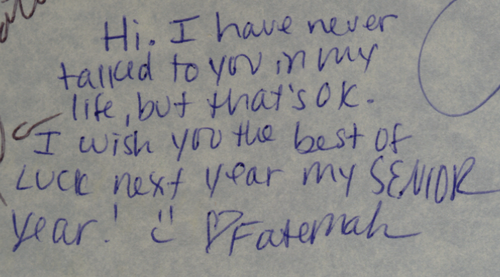 Hi. I have never
talked to you in my
life, but that's OK.
I wish you the best of
LUCK next year my SENIOR
year! :) ♡Fatemah